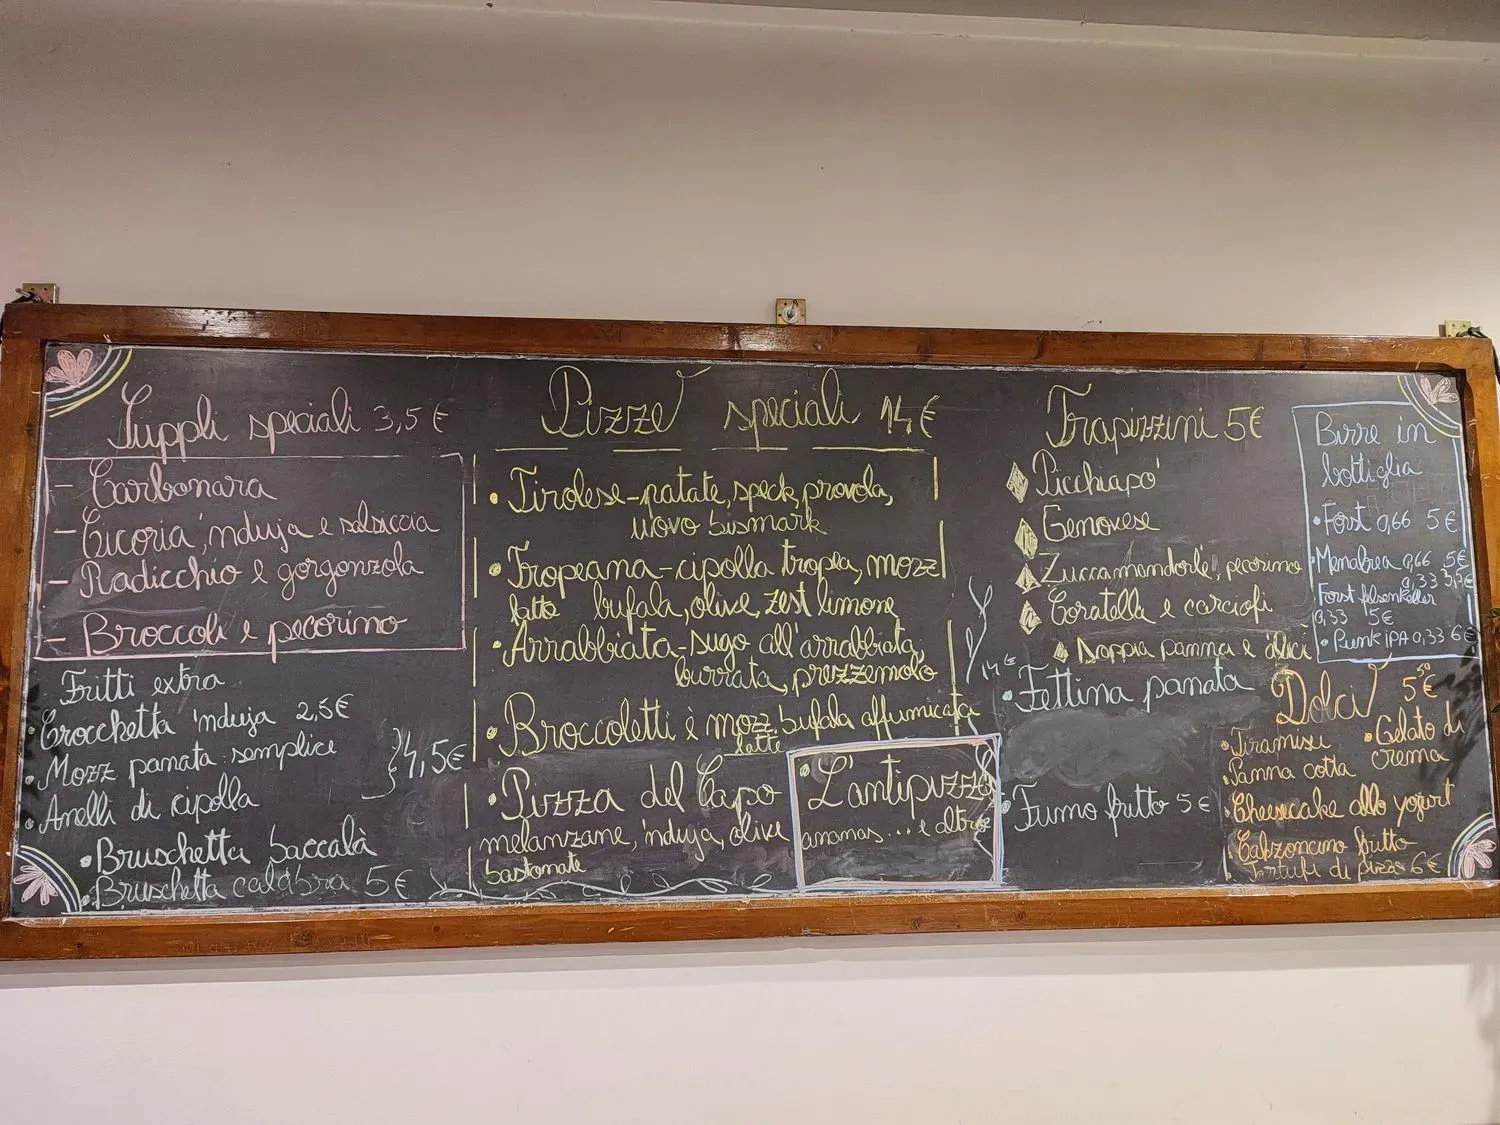 Supplì speciali 3,5€
- Carbonara
- Cicoria, 'nduja e salsiccia
- Radicchio e gorgonzola
- Broccoli e pecorino
Fritti extra
Crocchetta 'nduja 2,5€
• Mozz panata semplice
• Anelli di cipolla
4,5€
• Bruschetta baccalà
• Bruschetta calabra 5€
Pizze speciali 14€
• Tirolese - patate, speck, provola,
uovo bismark
• Tropeana - cipolla tropea, mozz
latte bufala, olive, zest limone
• Arrabbiata - sugo all'arrabbiata,
burrata, prezzemolo
14€
• Broccoletti è mozz bufala affumicata
latte
• Pizza del Capo
melanzane, 'nduja, olive
bastonate
• L'antipizza
ananas... e altro
Trapizzini 5€
Picchiapò
Genovese
Zuccamandorle, pecorino
Coratella e carciofi
Doppia panna e alici
• Fettina panata
• Fumo fritto 5€
Birre in
bottiglia
• Forst 0,66 5€
• Menabrea 0,66 5€
0,33 3,5€
Forst felsenkeller
0,33 5€
• Punk iPA 0,33 6€
Dolci 5⁵⁰€
• Tiramisu
• Gelato di
crema
• Panna cotta
• Cheesecake allo yogurt
• Calzoncino fritto
• Tartufi di pizzo 6€